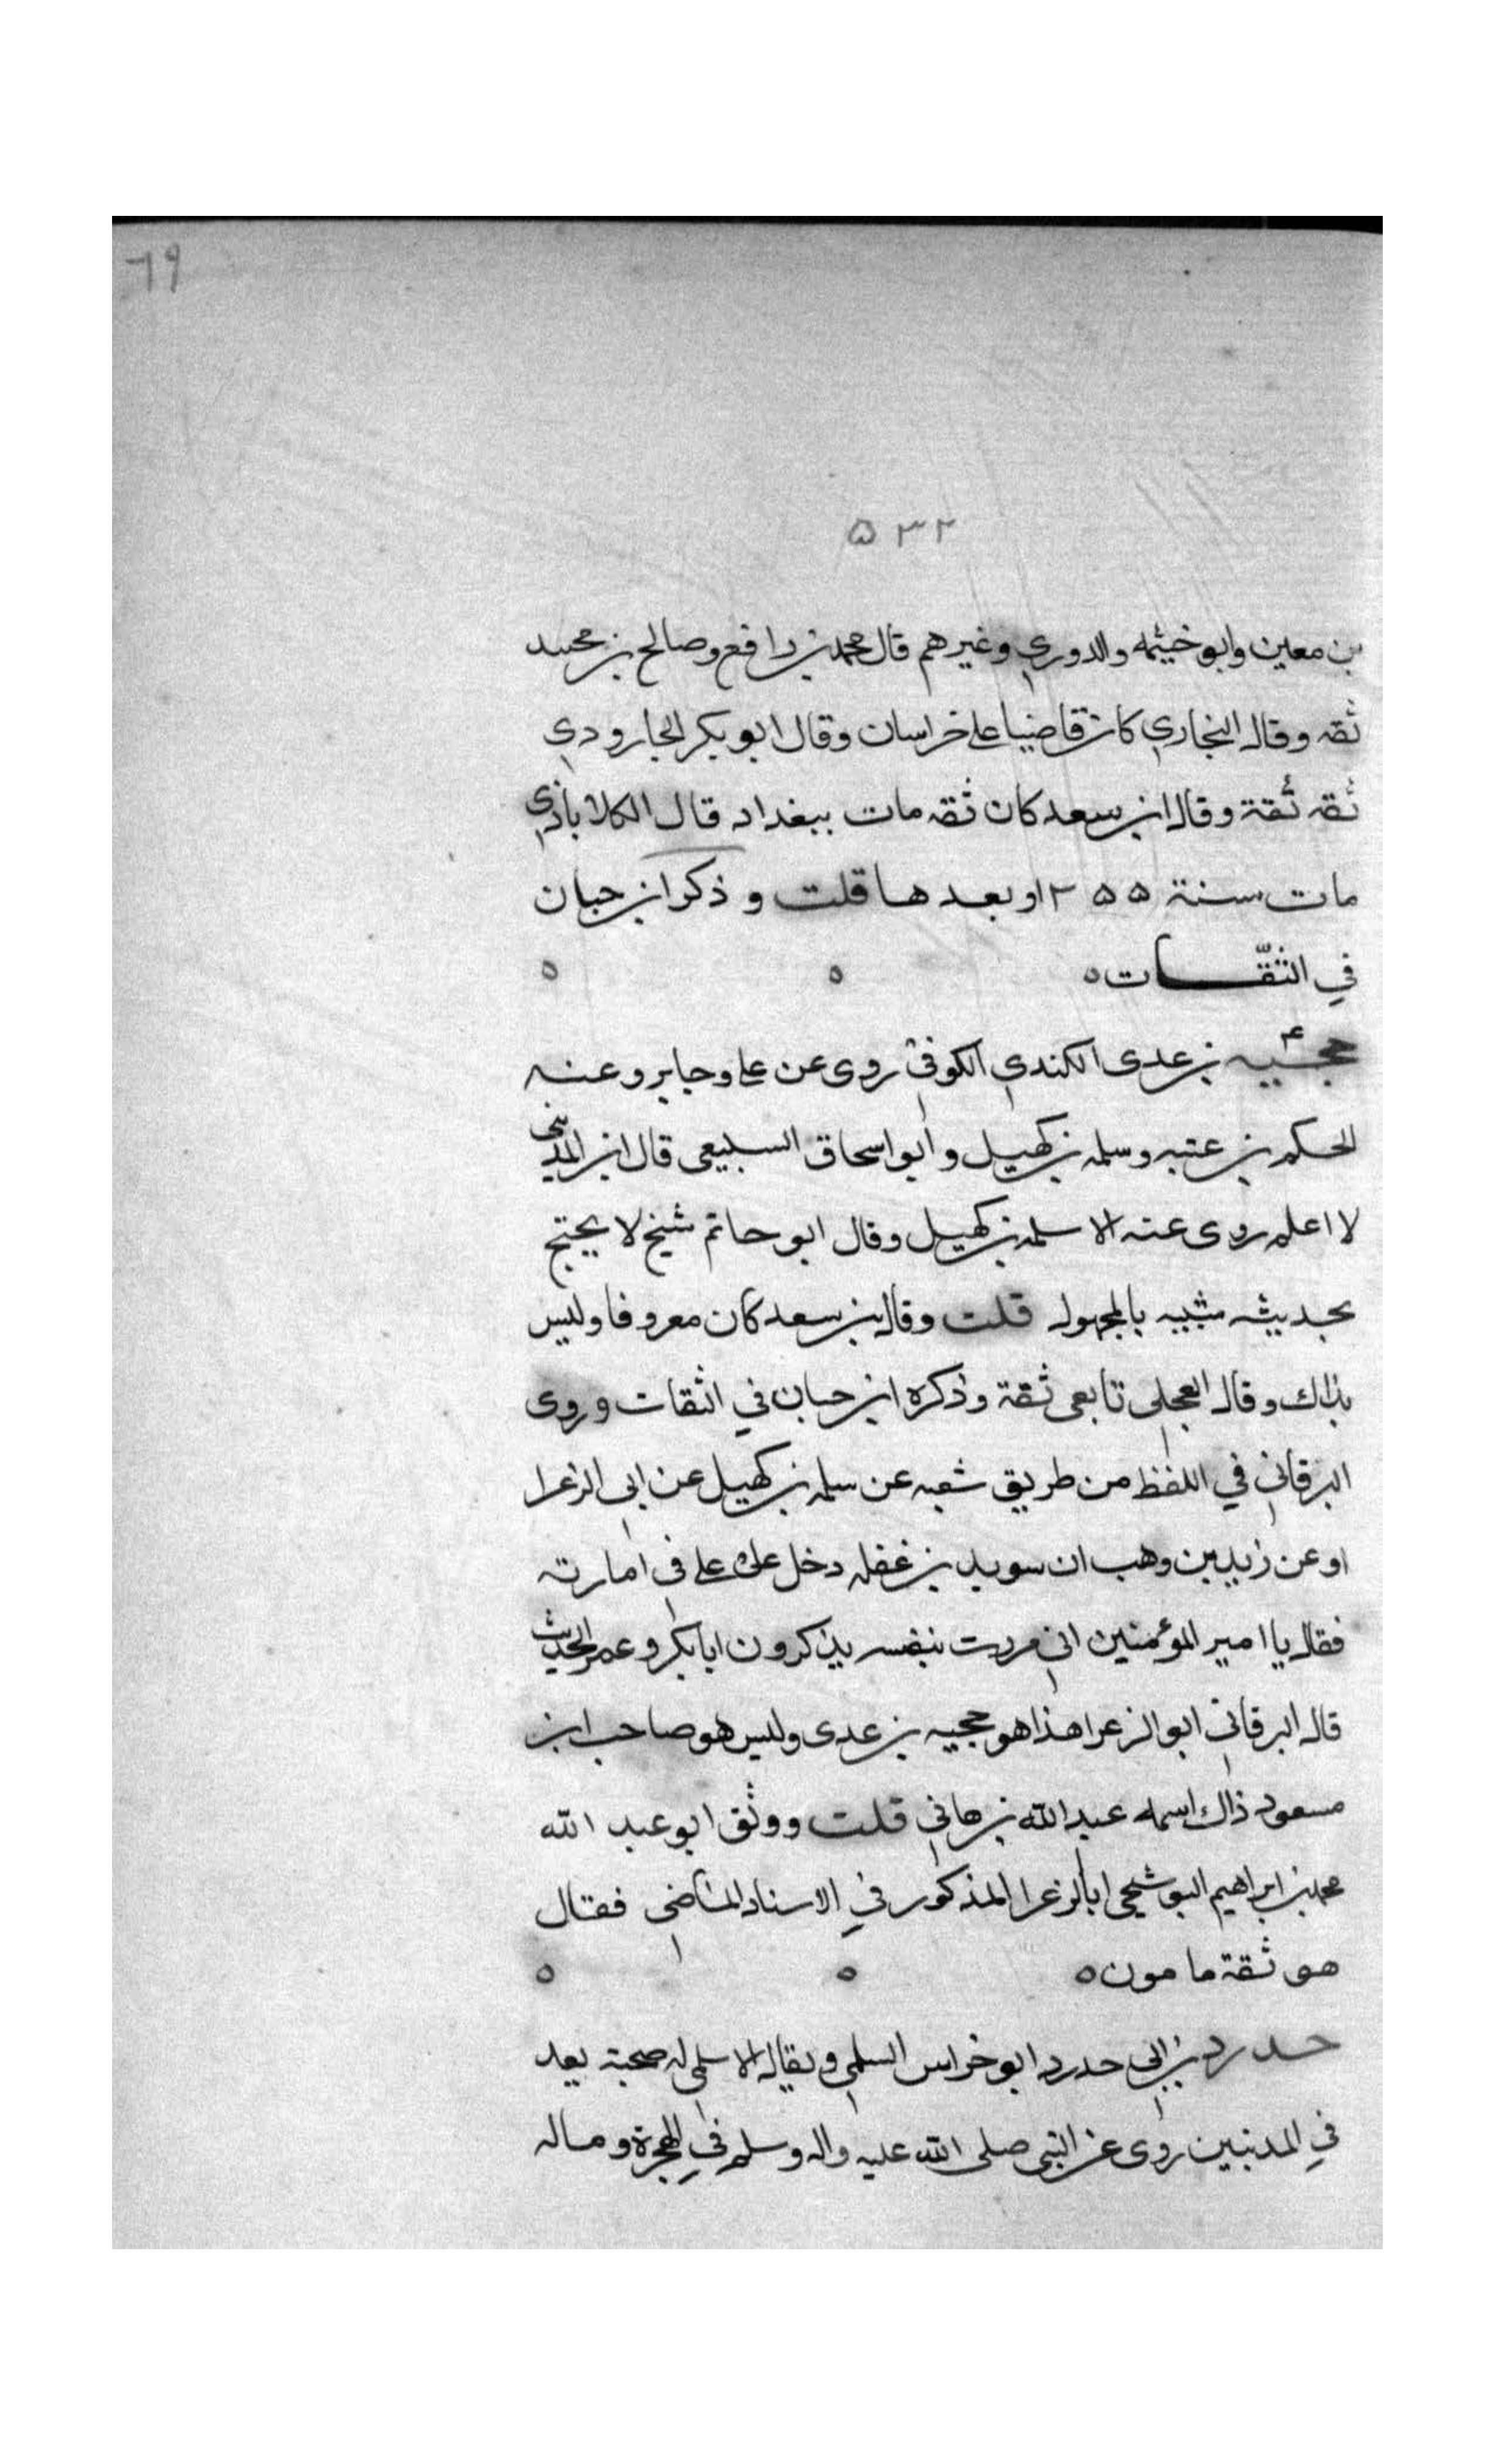 ٦٩
٥٣٢
بن معين وابو خيثمه والدوري وغيرهم قال محمد بن رافع وصالح بن محمد
ثقه وقال البخاري كان قاضيا على خراسان وقال ابو بكر الجارودي
ثقه ثقة وقال ابن سعد كان ثقه مات ببغداد قال الكلاباذي
مات سنة ٢٥٥ او بعدها قلت وذكر ابن حبان
في الثقات ٥ ٥ ٥
حجيه بن عدى الكندي الكوفي روى عن على وجابر وعنه
الحكم بن عتبه وسلمه بن كهيل وابو اسحاق السبيعى قال ابن المدينى
لا اعلم روى عنه الا سلمه بن كهيل وقال ابو حاتم شيخ لا يحتج
بحديثه شبيه بالمجهول قلت وقال بن سعد كان معروفا وليس
بذاك وقال العجلى تابعى ثقة وذكره ابن حبان في الثقات وروى
البرقاني في اللفظ من طريق شعبه عن سلمه بن كهيل عن ابى الزعرا
او عن زيد بن وهب ان سويد بن غفله دخل على على فى امارته
فقال يا امير المؤمنين انى مررت بنفسر يذكرون ابا بكر وعمر الحديث
قال البرقاني ابو الزعرا هذا هو حجيه بن عدى وليس هو صاحب ابن
مسعود ذاك اسمه عبد الله بن هاني قلت ووثق ابو عبد الله
محمد بن ابراهيم البوشيحى ابا الزعرا المذكور في الاسناد الماضى فقال
هو ثقة مامون ٥ ٥ ٥
حدرد بن ابى حدرد ابو خراس السلمى ويقال الاسلمى له صحبة يعد
في المدنيين روى عن النبى صلى الله عليه واله وسلم في الهجرة وماله